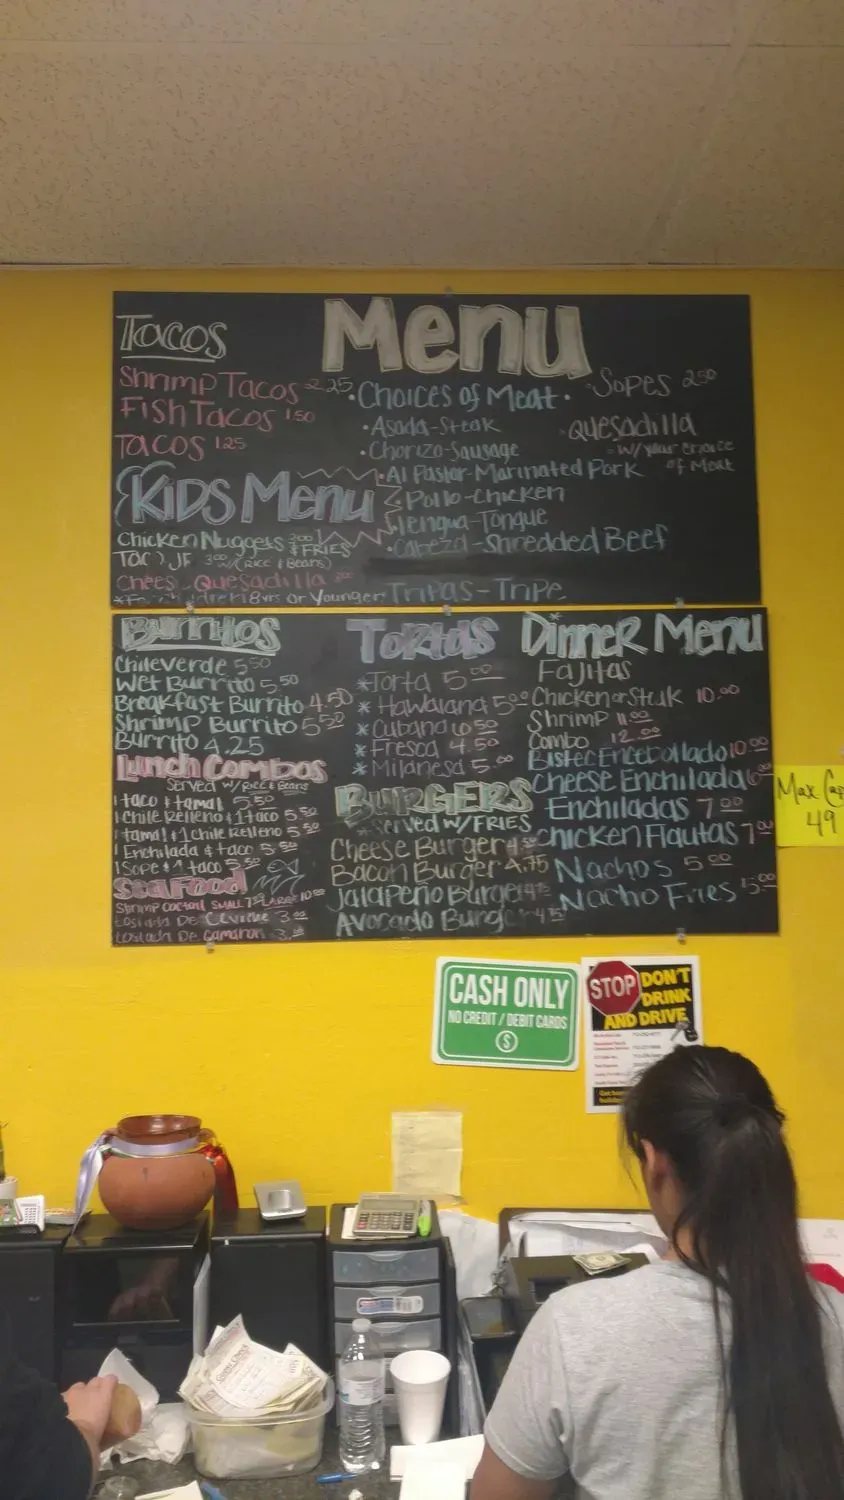 Menu
Tacos
Shrimp Tacos 2.25
Fish Tacos 1.50
Tacos 1.25
Kids Menu
Chicken Nuggets & Fries
w/(Rice & Beans)
Quesadilla
8yrs or Younger
• Choices of Meat •
• Asada-Steak
• Chorizo-Sausage
• Al Pastor-Marinated Pork
• Pollo-Chicken
• lengua-Tongue
• Cabeza-Shredded Beef
Tripas-Tripe
Sopes 2.50
Quesadilla
w/your choice
of Meat
Burritos
Chile Verde 5.50
Wet Burrito 5.50
Breakfast Burrito 4.50
Shrimp Burrito 5.50
Burrito 4.25
Lunch Combos
Served w/Rice & Beans
1 taco & tamal 5.50
1 Chile Relleno & 1 taco 5.50
1 tamal & 1 Chile Relleno 5.50
1 Enchilada & taco 5.50
1 Sope & 1 taco 5.50
Seafood
Shrimp Coctail Small 7.25 Large 10.00
Tostada De Ceviche 3.00
Tostada De Camaron 3.00
Tortas
* Torta 5.00
* Hawaiana 5.00
* Cubana 6.50
* Fresca 4.50
* Milanesa 5.00
Burgers
* Served w/Fries
Cheese Burger 4.50
Bacon Burger 4.75
Jalapeño Burger 4.75
Avocado Burger 4.75
Dinner Menu
Fajitas
Chicken or Steak 10.00
Shrimp 11.00
Combo 12.00
Bistec Encebollado 10.00
Cheese Enchilada 6.00
Enchiladas 7.00
Chicken Flautas 7.00
Nachos 5.00
Nacho Fries 5.00
Max Cap
49
CASH ONLY
NO CREDIT / DEBIT CARDS
$
STOP
DON'T
DRINK
AND DRIVE
Guest Check